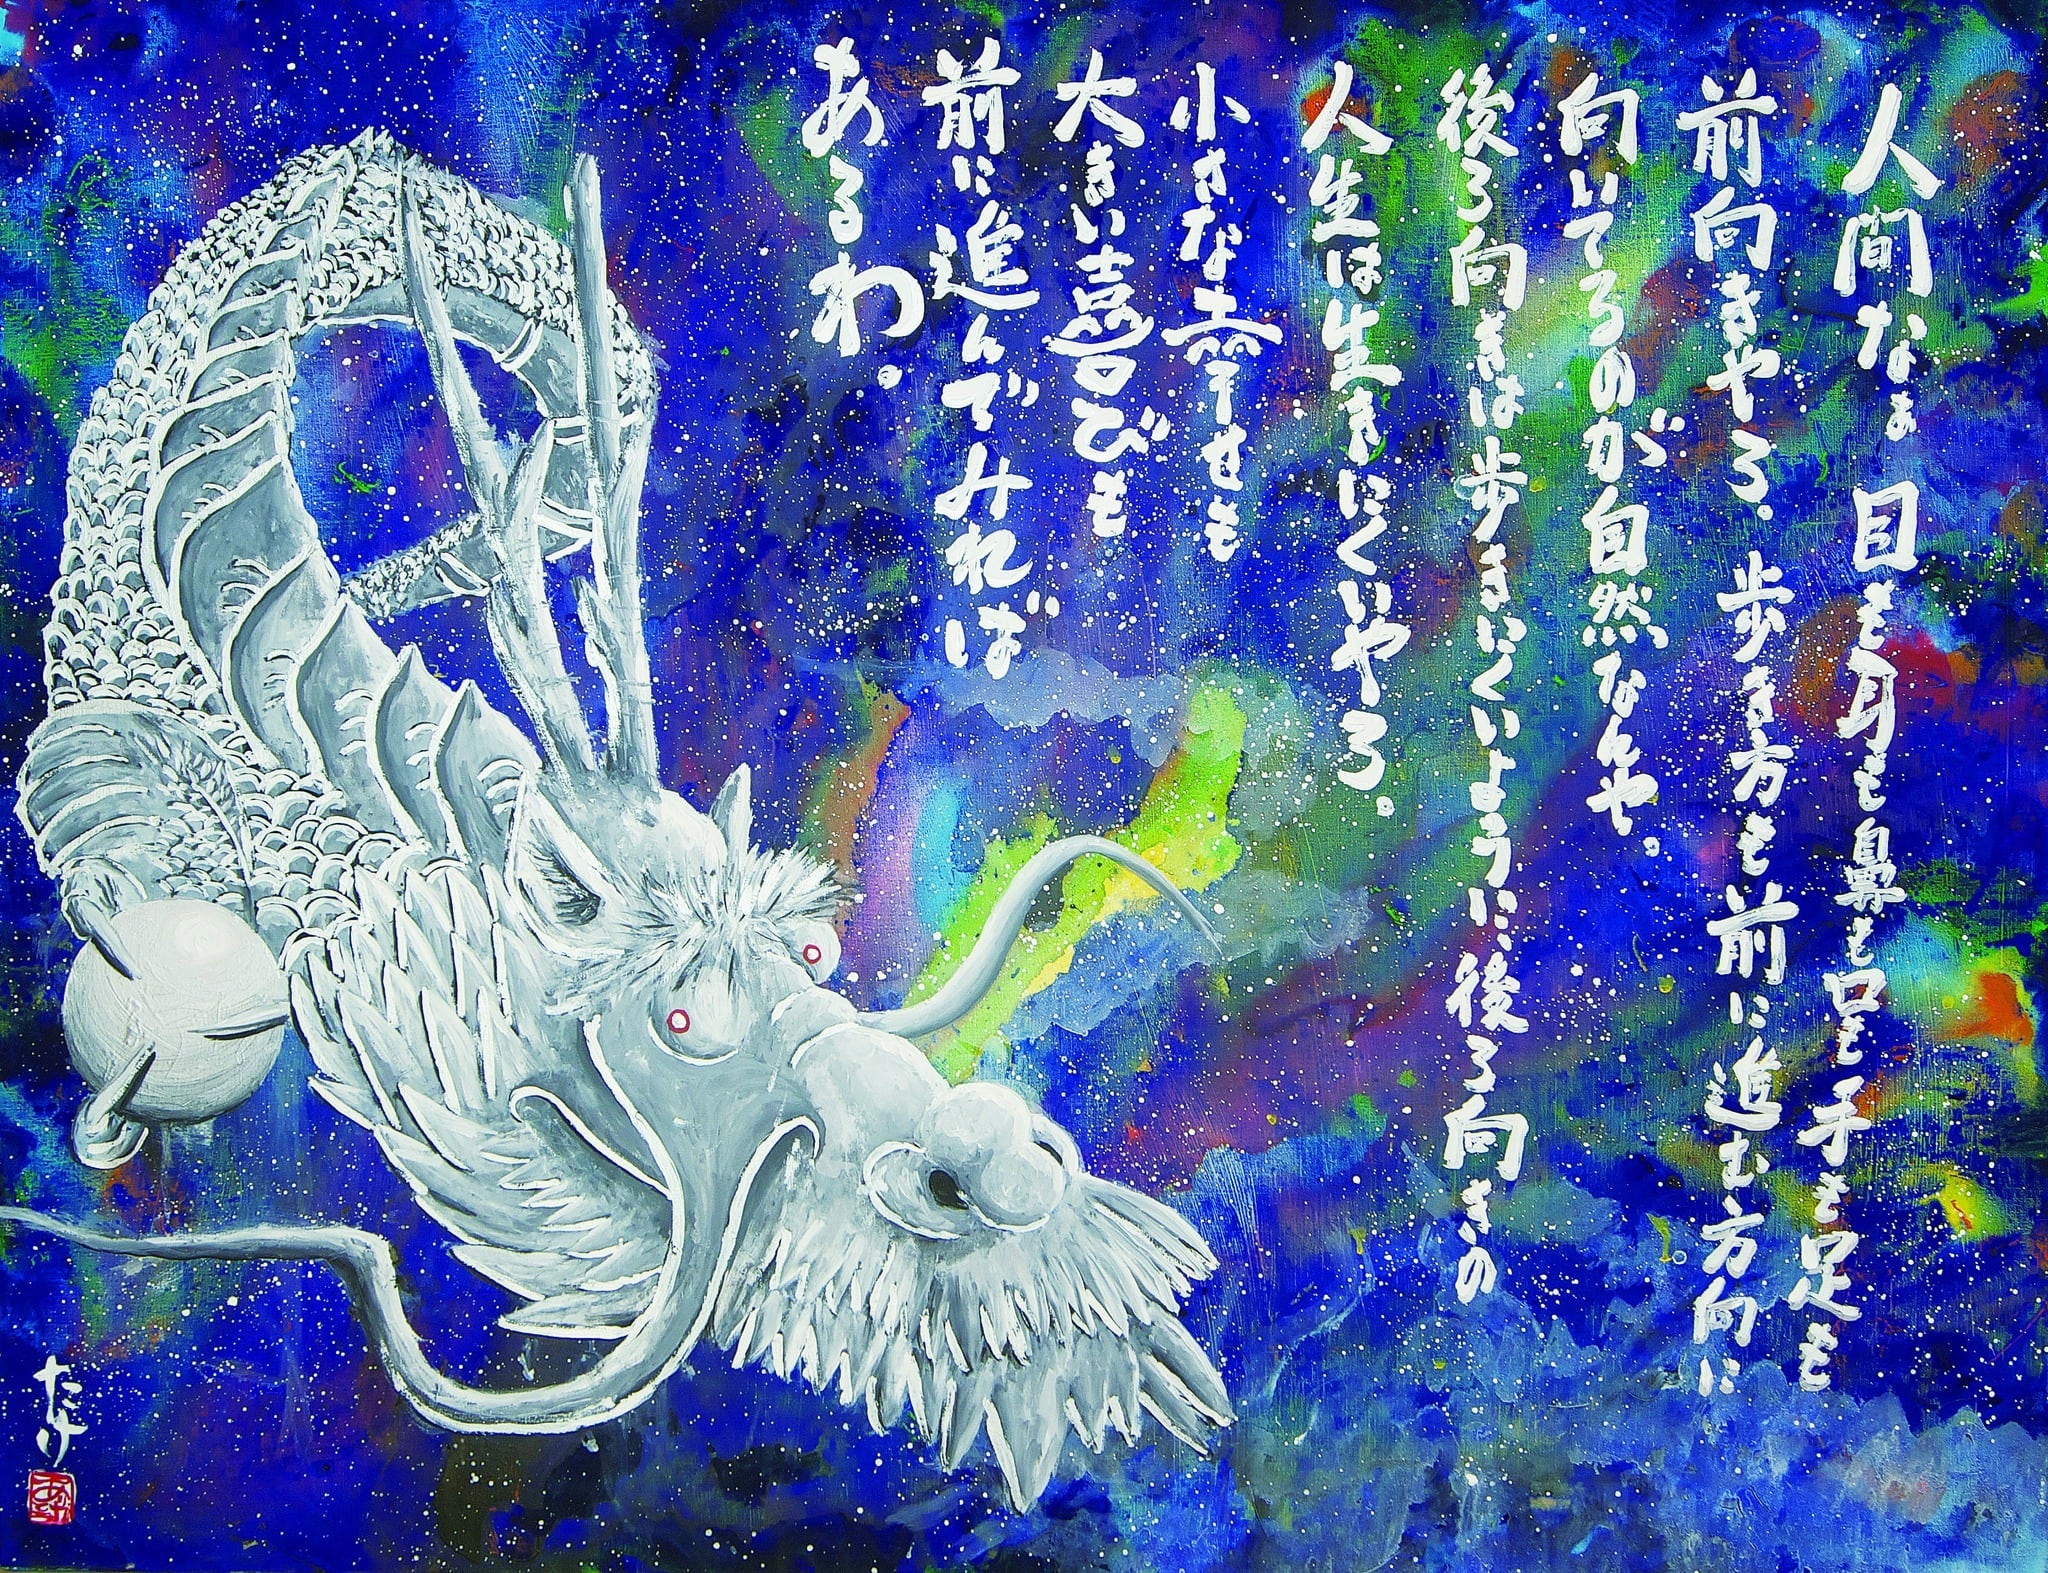 人間なぁ 目も耳も鼻も口も手も足も
前向きやろ。歩き方も前に進む方向に
向いてるのが自然なんや。
後ろ向きは歩きにくいように後ろ向きの
人生は生きにくいやろ。
小さな幸せも
大きい喜びも
前に進んでみれば
あるわ。
たけ